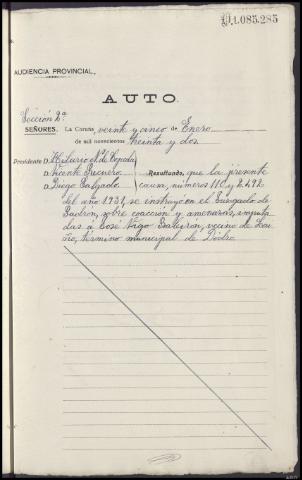 D.1.085.285
AUDIENCIA PROVINCIAL,
AUTO.
Sección 2ª
SEÑORES. La Coruña veinte y cinco de Enero
de mil novecientos treinta y dos
Presidente D. Hilario N. de Cepeda
D. Vicente
D. Diego Salgado
Resultando, que la presente
causa, números 110 y 2.412
del año 1931, se instruyó en el Juzgado de
Padrón, sobre coacción y amenazas, imputa-
das á José Vigo Baleirón, vecino de Lou-
ro, término municipal de Dodro